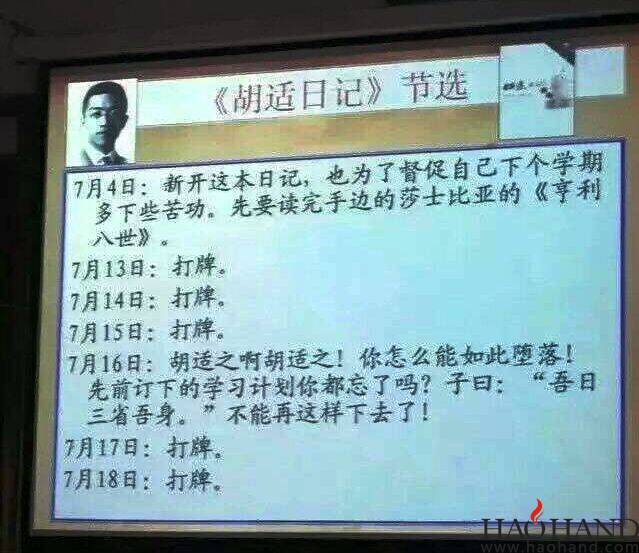 《胡适日记》节选
7月4日：新开这本日记，也为了督促自己下个学期
多下些苦功。先要读完手边的莎士比亚的《亨利
八世》。
7月13日：打牌。
7月14日：打牌。
7月15日：打牌。
7月16日：胡适之啊胡适之！你怎么能如此堕落！
先前订下的学习计划你都忘了吗？子曰：“吾日
三省吾身。”不能再这样下去了！
7月17日：打牌。
7月18日：打牌。
HAOHAND
www.haohand.com